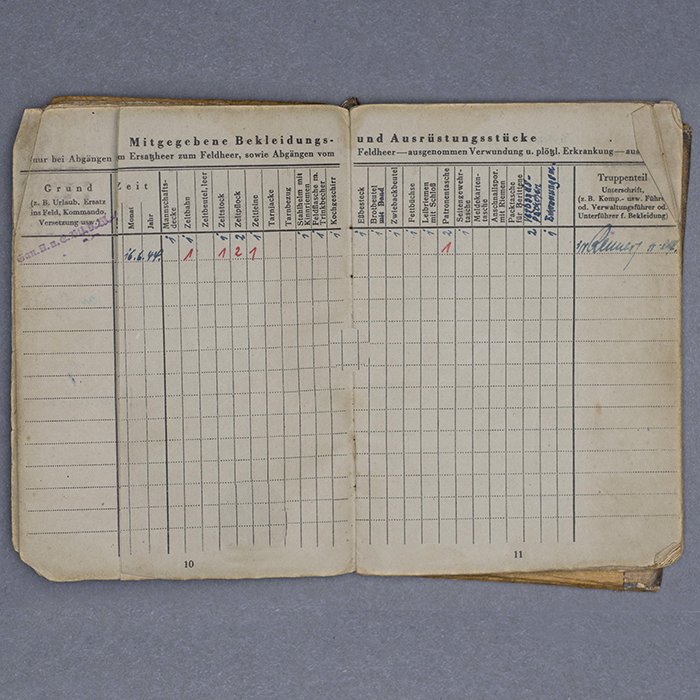 Mitgegebene Bekleidungs-
(nur bei Abgängen m Ersatzheer zum Feldheer, sowie Abgängen vom
Grund
(z. B. Urlaub, Ersatz
ins Feld, Kommando,
Versetzung usw.)
Zeit
Monat
Jahr
Mannschafts-
decke
Zeltbahn
Zeltbeutel, leer
Zeltstock
Zeltpflock
Zeltleine
Tarnjacke
Tarnbezug
Stahlhelm mit
Kinnriemen
Feldflasche m.
Trinkbecher
Kochgeschirr
1 1 1 2 1 1 1 1
16. 6. 44. 1 1 2 1
10
und Ausrüstungsstücke
Feldheer — ausgenommen Verwundung u. plötzl. Erkrankung — aus
Eßbesteck
Brotbeutel
mit Band
Zwiebackbeutel
Fettbüchse
Leibriemen
mit Schloß
Patronentasche
Seitengewehr-
tasche
Meldekarten-
tasche
Anschnallspor.
mit Riemen
Packtasche
für Berittene
Truppenteil
Unterschrift,
(z. B. Komp.- usw. Führe
od. Verwaltungsführer od.
Unterführer f. Bekleidung)
1 1 1 1 1 2 1 2 1
1
11